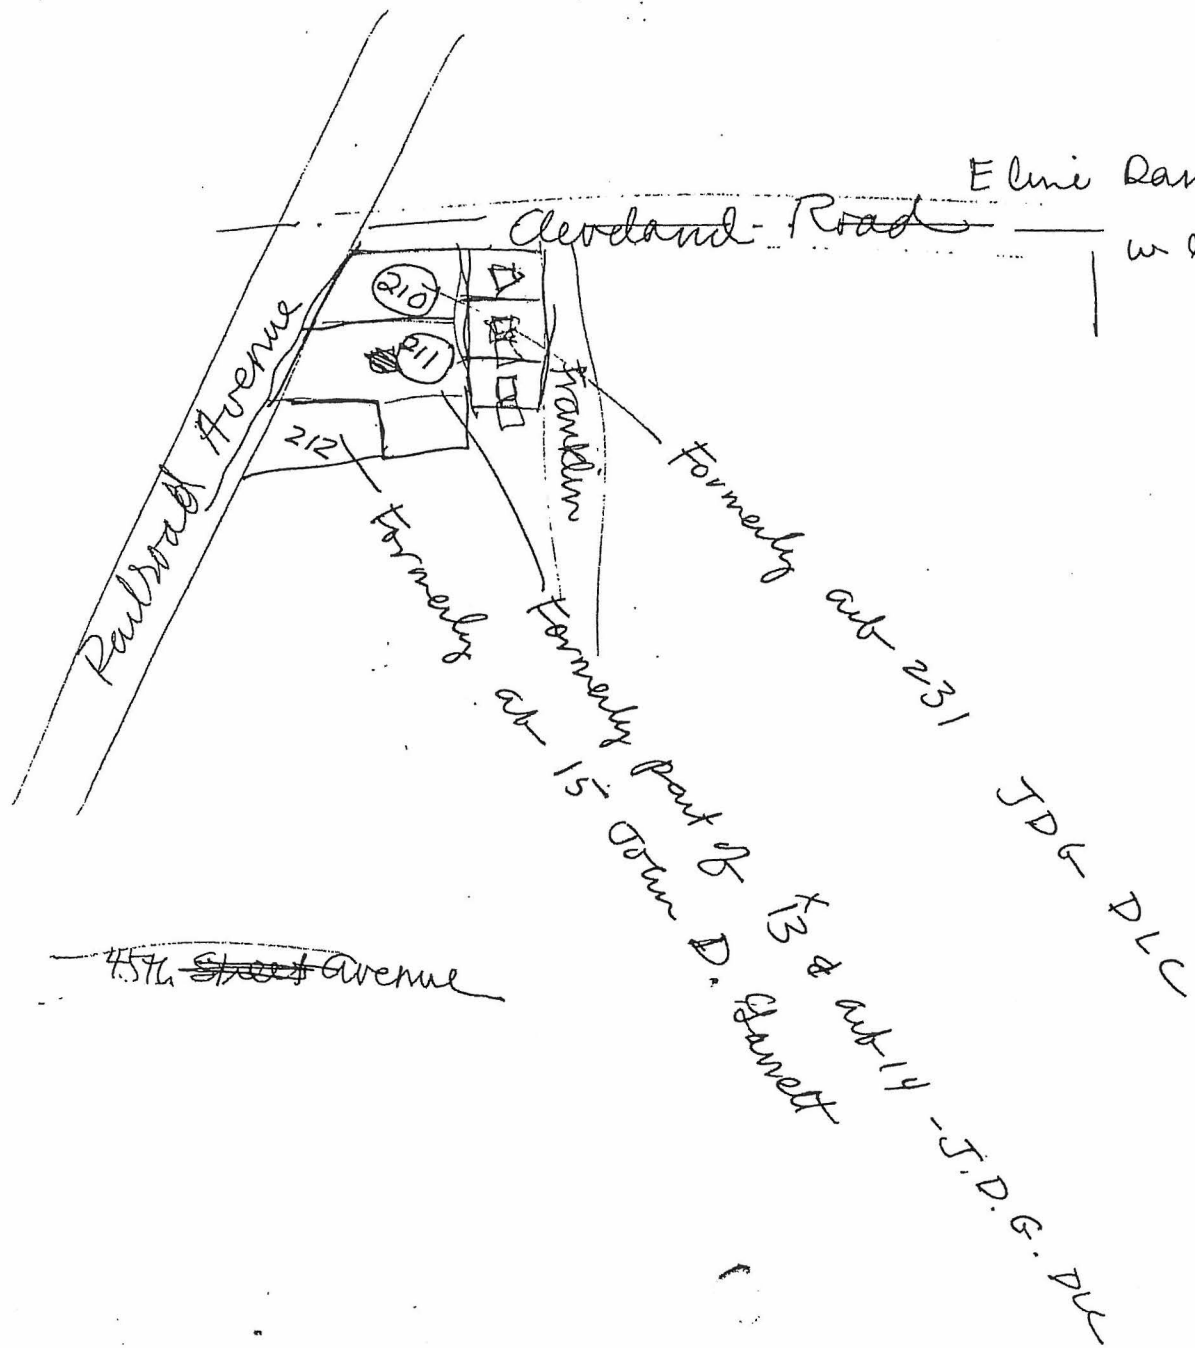 E line
Cleveland Road
w
210
211
212
Railroad Avenue
Franklin
Formerly arb 231 JDG DLC
Formerly part of 13 & arb 14 - J.D.G. DLC
Formerly arb 15 John D. Garrett
45th Street Avenue